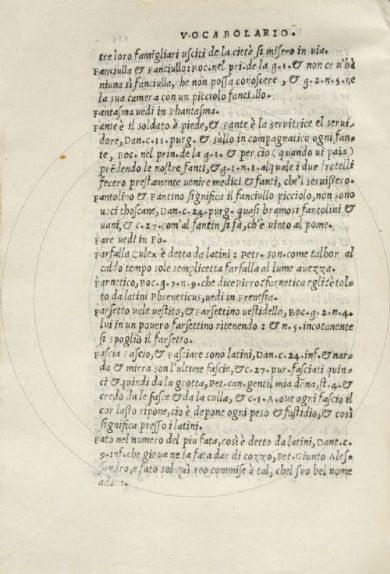 VOCABOLARIO.
tre loro famigliari usciti de la città si misero in via.
Fanciulla & Fanciullo: Boc. nel pri. de la g. 1. & non ce n'hà
niuna si fanciulla, che non possa conoscere, & g. 2. n. 5. ne
la sua camera con un picciolo fanciullo.
Fantasma uedi in Phantasma.
Fante è il soldato è piede, & Fante è la servitrice el serui-
dore, Dan. c. 11. purg. & s'allo in compagnatico ogni fan-
te, Boc. nel prin. de la g. 1. & per cio (quando ui paia)
prēdendo le nostre fanti, & g. 1. n. 1. al quale i due fratelli
fecero prestamente uenire medici & fanti, che'l seruissero.
Fantolino & Fantino significa il fanciullo picciolo, non sono
uoci thoscane, Dan. c. 24. purg. quasi bramosi fantolini &
uani, & c. 27. com' al fantin si fa, ch'è uinto al pome.
Fare uedi in Fo.
Farfalla Culex è detta da latini: Petr. son. come talhor al
caldo tempo sole semplicetta farfalla al lume auezza.
Farnetico, Boc. g. 7. n. 9. che dice Pirro? farnetica egli? è tol-
to da latini Phreneticus, uedi in Frenesia.
Farsetto uale uestito, & Farsettino uestidello, Boc. g. 2. n. 4.
lui in un pouero farsettino ritenendo: & n. 5. incotanente
si spogliò il farsetto.
Fascia Fascio, & Fasciare sono latini, Dan. c. 24. inf. & nar-
do & mirra son l'ultime fascie, & c. 27. pur. fasciati quin-
ci & quindi da la grotta, Pet. can. gentil mia dōna, st. 4. &
credo da le fasce & da la culla, & c. 1. A. oue ogni fascio il
cor lasso ripone, cio è depone ogni peso & fastidio, & così
significa presso i latini.
Fato nel numero del piu fata, così è detto da latini, Dant. c.
9. inf. che gioua ne la fata dar di cozzo, Pet. Giunto Ales-
sandro, e fato sol quì reo commise à tal, che'l suo bel nome
adora.